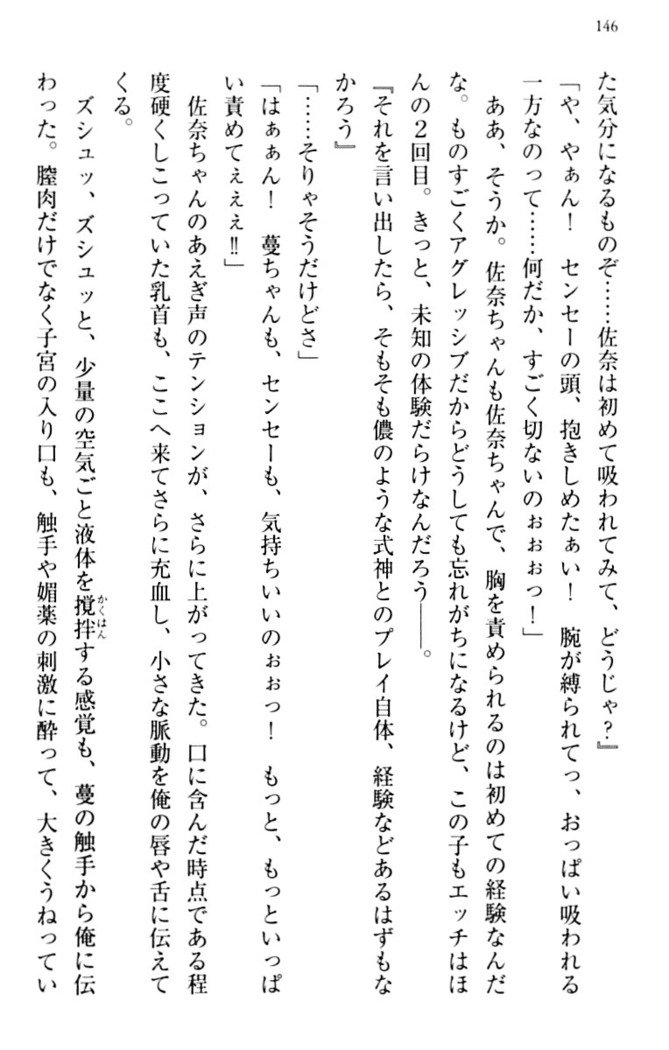 146
た気分になるものぞ……佐奈は初めて吸われてみて、どうじゃ？』
「や、やぁん！　センセーの頭、抱きしめたぁい！　腕が縛られてっ、おっぱい吸われる
一方なのって……何だか、すごく切ないのぉぉぉっ！」
ああ、そうか。佐奈ちゃんも佐奈ちゃんで、胸を責められるのは初めての経験なんだ
な。ものすごくアグレッシブだからどうしても忘れがちになるけど、この子もエッチはほ
んの２回目。きっと、未知の体験だらけなんだろう――。
『それを言い出したら、そもそも儂のような式神とのプレイ自体、経験などあるはずもな
かろう』
「……そりゃそうだけどさ」
「はぁぁん！　蔓ちゃんも、センセーも、気持ちいいのぉぉっ！　もっと、もっといっぱ
い責めてぇぇぇ!!」
佐奈ちゃんのあえぎ声のテンションが、さらに上がってきた。口に含んだ時点である程
度硬くしこっていた乳首も、ここへ来てさらに充血し、小さな脈動を俺の唇や舌に伝えて
くる。
ズシュッ、ズシュッと、少量の空気ごと液体を撹拌する感覚も、蔓の触手から俺に伝
かくはん
わった。膣肉だけでなく子宮の入り口も、触手や媚薬の刺激に酔って、大きくうねってい